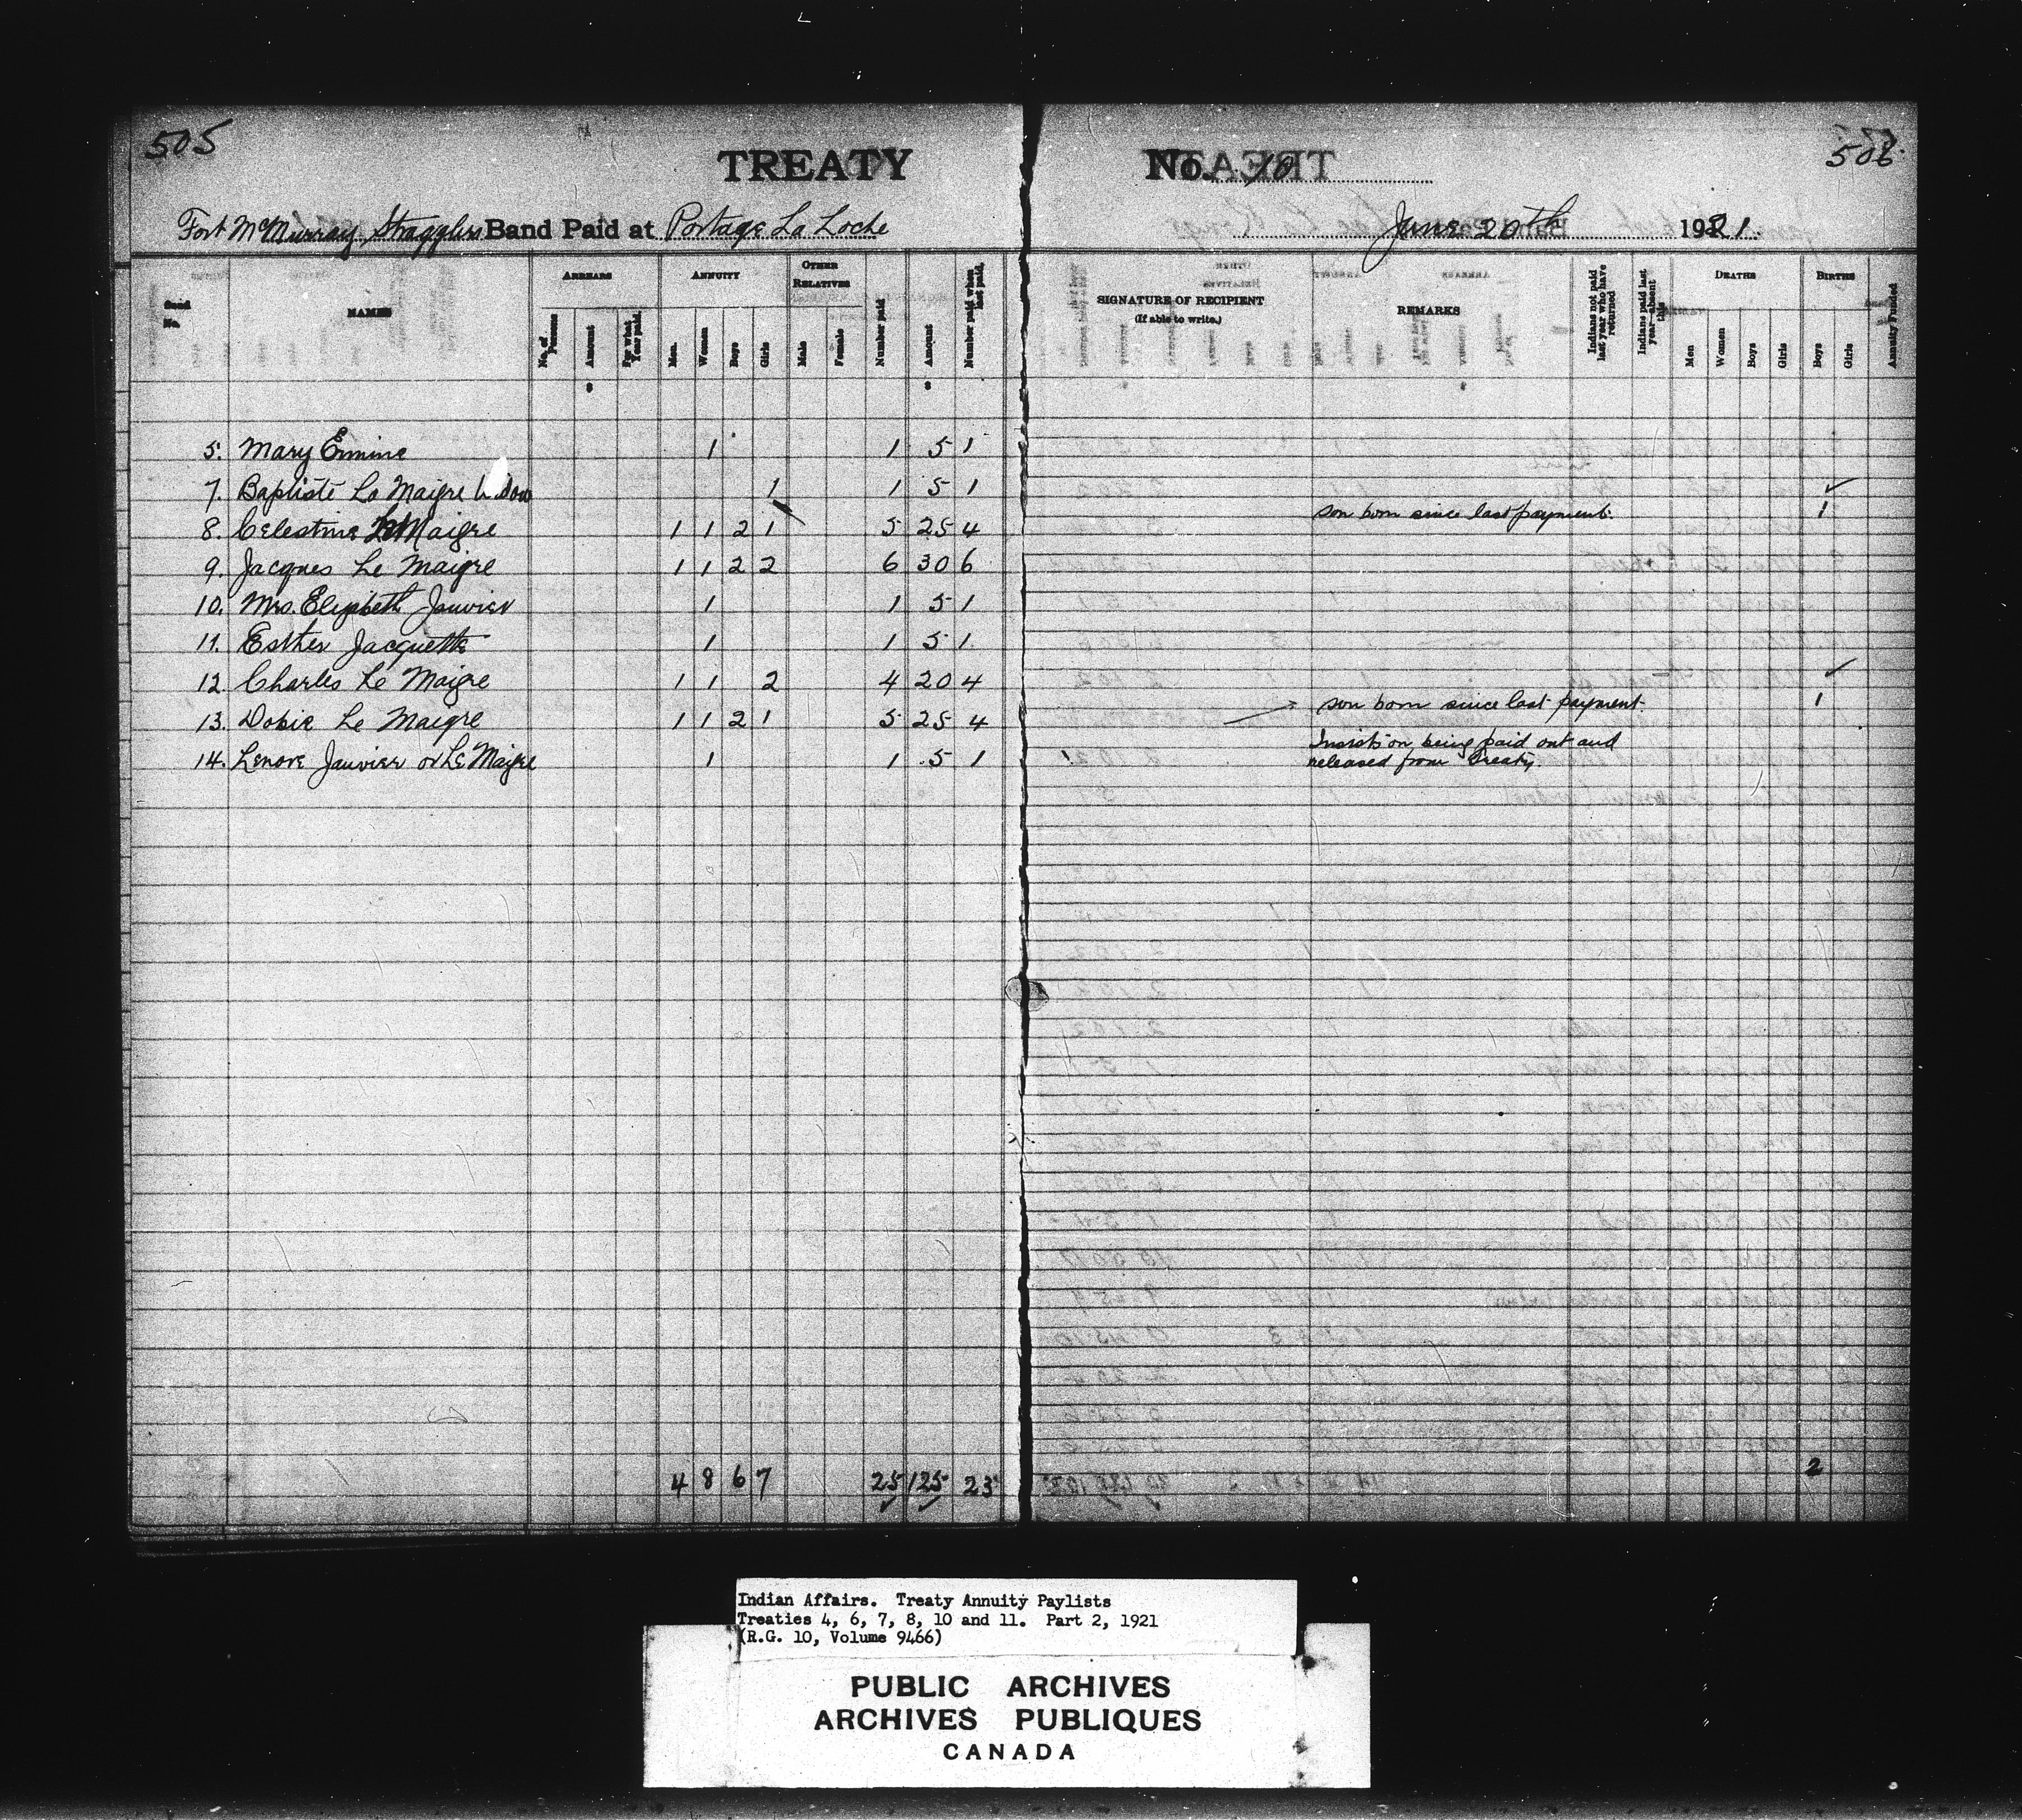 505
506.
TREATY No. 10
Fort McMurray Stragglers Band Paid at Portage La Loche June 20th 1921.
Band No. NAMES ARREARS ANNUITY OTHER RELATIVES Number paid Amount Number paid when last paid. SIGNATURE OF RECIPIENT (If able to write.) REMARKS Indians not paid last year who have returned Indians paid last year—absent this DEATHS BIRTHS Annuity Funded
No. of Persons Amount For what Year paid. Men. Women Boys Girls Male Female Men Women Boys Girls Boys Girls
5. Mary Ermine 1 1 5 1
7. Baptiste La Maigre 1 1 5 1
8. Celestine Le Maigre 1 1 2 1 5 25 4 son born since last payment. 1
9. Jacques Le Maigre 1 1 2 2 6 30 6
10. Mrs. Elizabeth Janvier 1 1 5 1
11. Esther Jacquette 1 1 5 1.
12. Charles Le Maigre 1 1 2 4 20 4
13. Dobie Le Maigre 1 1 2 1 5 25 4 son born since last payment. 1
14. Lenore Janvier or Le Maigre 1 1 5 1 Insists on being paid out and
released from Treaty.
4 8 6 7 25 125 23 2
Indian Affairs. Treaty Annuity Paylists
Treaties 4, 6, 7, 8, 10 and 11. Part 2, 1921
(R.G. 10, Volume 9466)
PUBLIC ARCHIVES
ARCHIVES PUBLIQUES
CANADA